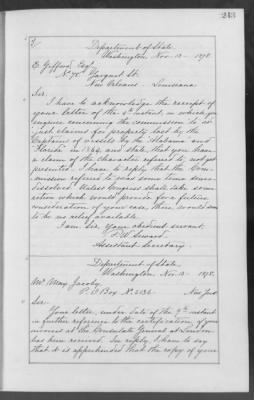 243
Department of State,
Washington, Nov. 13 - 1878.
E. Gifford Esqr.
No. 78 Margaret St.
New Orleans - Louisiana
Sir.
I have to acknowledge the receipt of
your letter of the 9th instant, in which you
enquire concerning the commission to ad-
just claims for property lost by the
Captains of vessels by the "Alabama" and
"Florida" in 1864 and state, that you have
a claim of the character referred to, not yet
presented. I have to reply that the Com-
mission referred to was some time since
dissolved. Unless Congress shall take some
action which would provide for a future
consideration of your case, there would seem
to be no relief available.
I am. Sir. Your obedient servant.
F. W. Seward
Assistant Secretary.
Department of State,
Washington, Nov. 13 - 1878.
Mr. Max Jacoby,
P. O. Box No. 2136. New York
Sir
Your letter, under date of the 9th instant
in further reference to the certification, of your
invoices at the Consulate General at London
has been received. In reply, I have to say
that it is apprehended that the copy of your